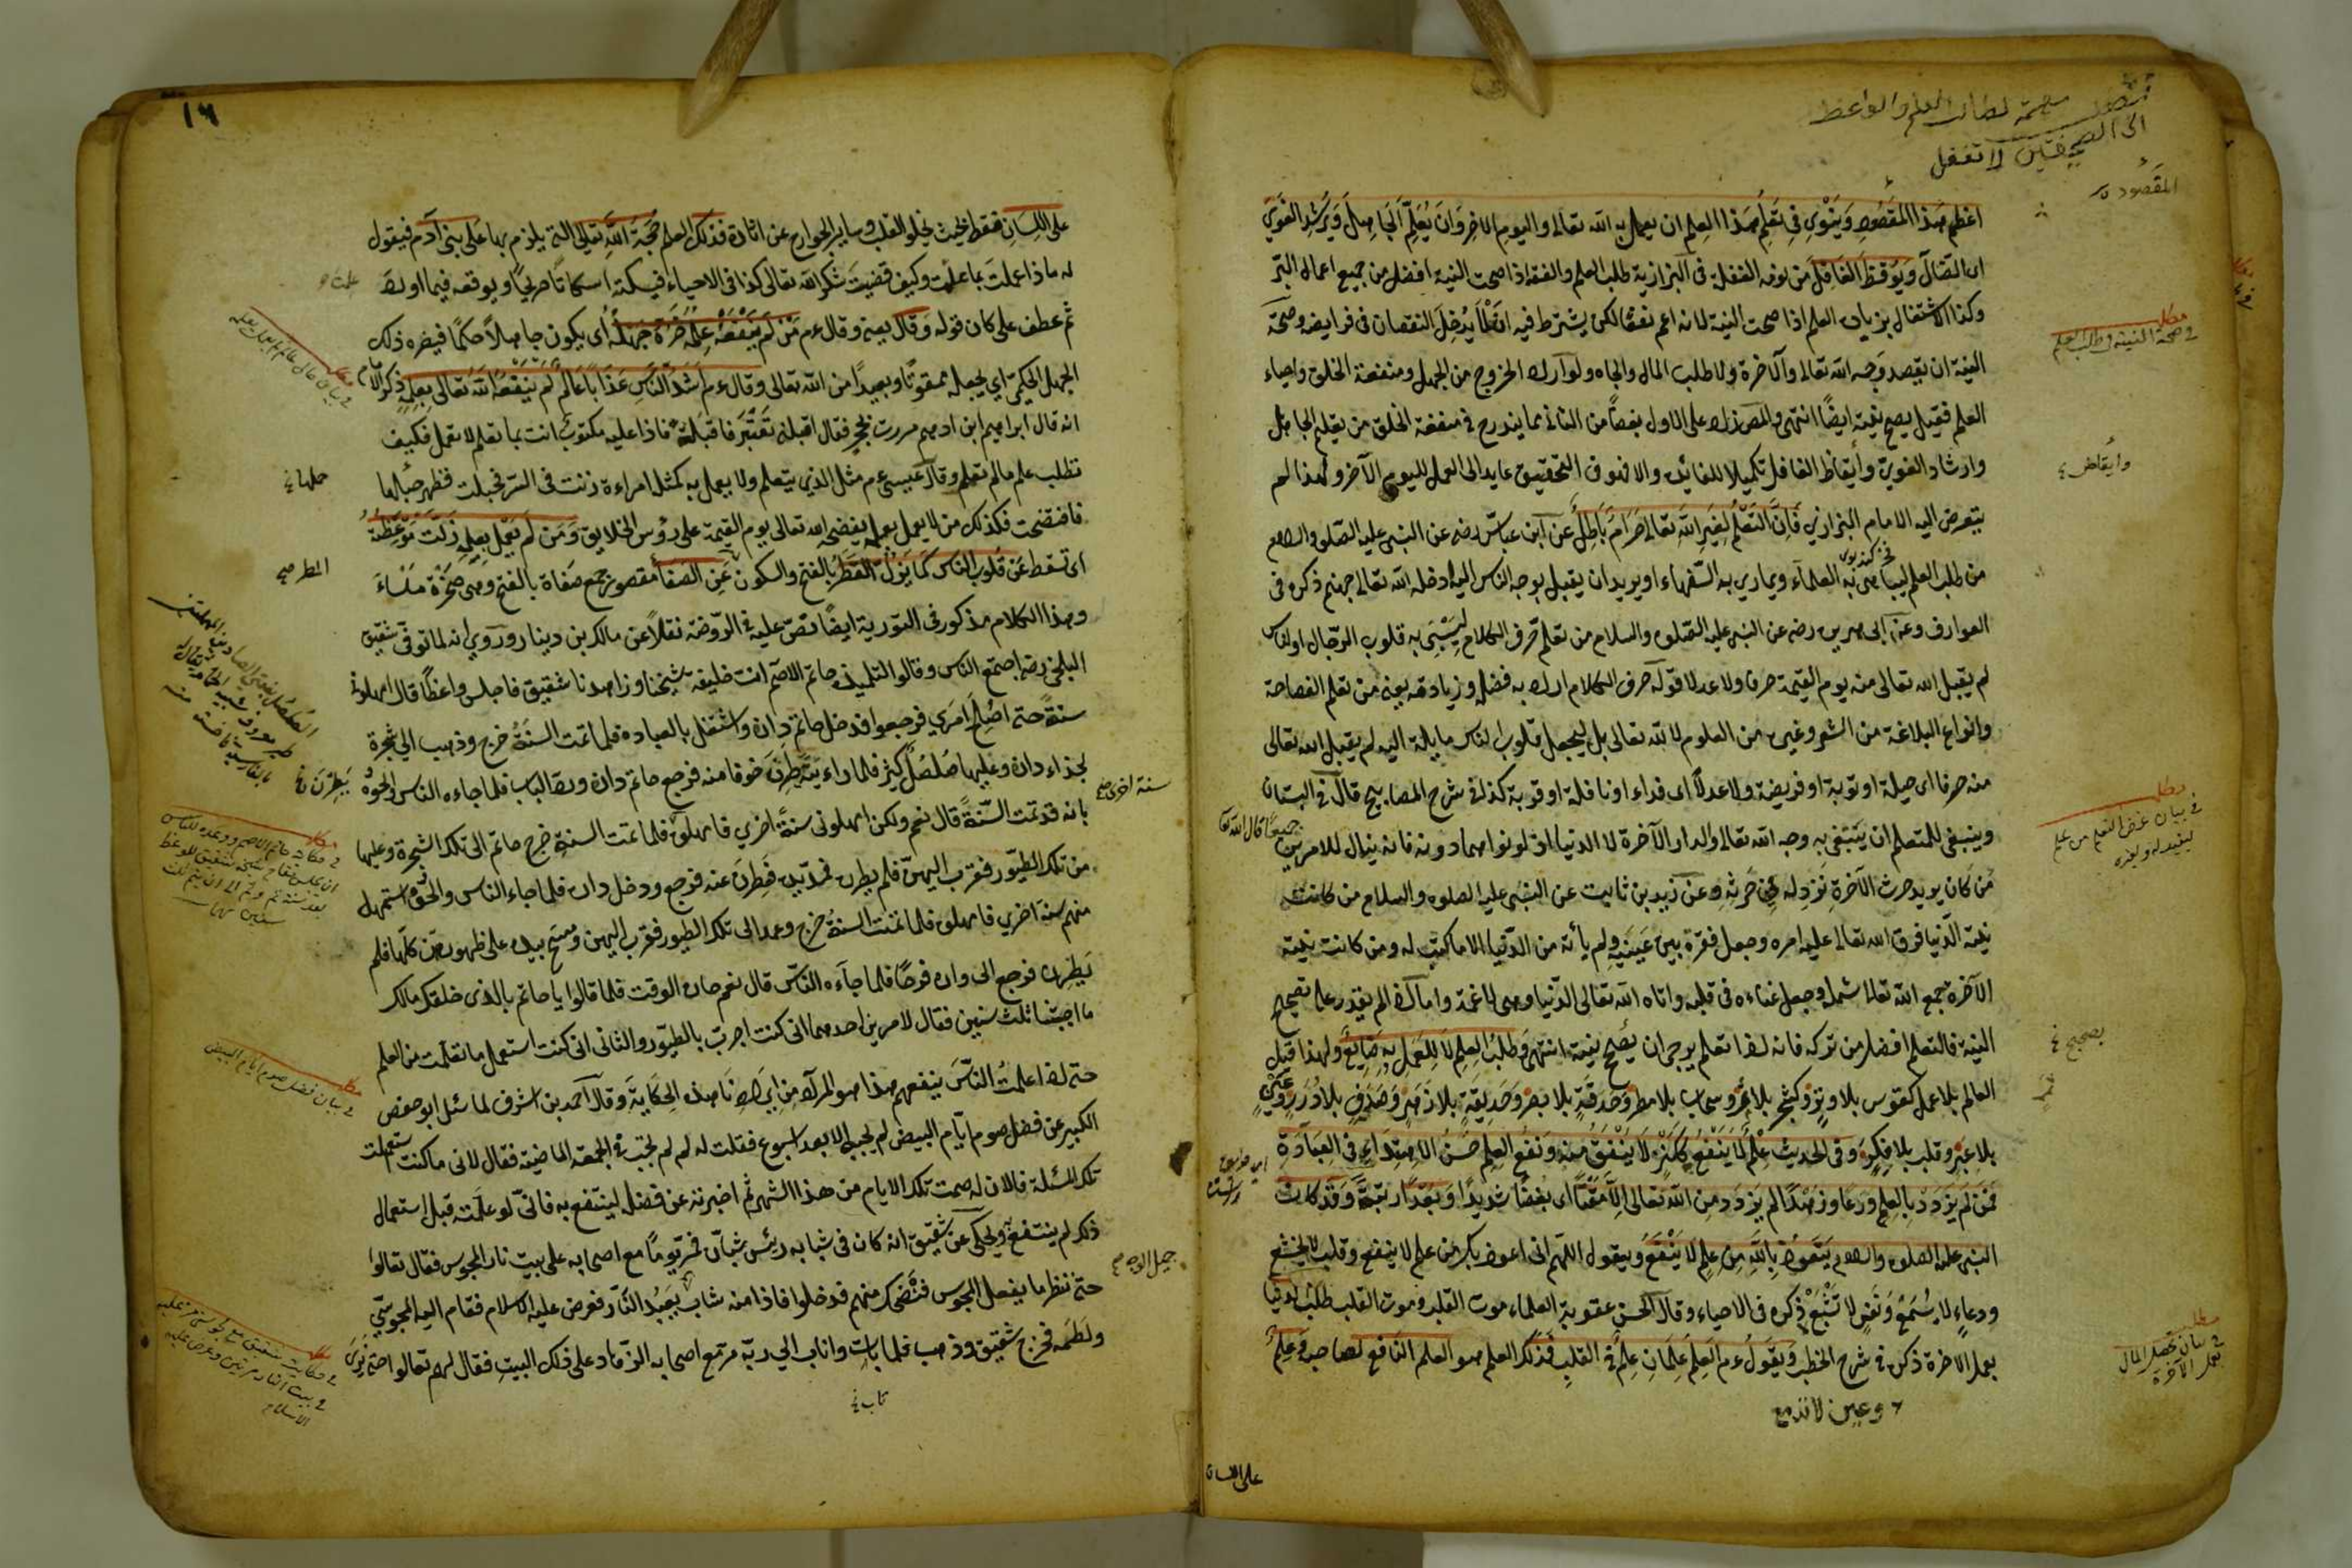 متضمن مهمة لطالب العلم والواعظ
الى الصحيفتين لا تغفل
المقصود
اعظم هذا المقصود وينوي في تعلم هذا العلم ان يعمل به الله تعالى واليوم الاخر وان يعلم الجاهل ويرشد الغوي
اى الضال ويوقظ الغافل من نومه الغفلة فى البزازية طلب العلم والفقه اذا صحت النية افضل من جميع اعمال البر
وكذا الاشتغال بزيادة العلم اذا صحت النية لانه اعم نفعا لكن يشترط فيه ان لا يدخل النقصان فى فرايضه وصحة
النية ان يقصد وجه الله تعالى والآخرة ولا طلب المال والجاه ولو اراد الخروج من الجهل ومنفعة الخلق واحياء
العلم فقيل يصح نيته ايضا انتهى والمص زاد على الاول بعضا من الثانى مما يندرج فى منفعة الخلق من تعليم الجاهل
وارشاد الغوي وايقاظ الغافل تكميلا للفائدة والا فهو فى التحقيق عايد الى العمل لليوم الآخر ولهذا لم
يتعرض اليه الامام البزازي فان التعلم لغير الله تعالى حرام باطل عن ابن عباس رضه عن النبى عليه الصلوة والسلام
من طلب العلم ليباهى به العلماء ويمارى به السفهاء او يريد ان يقبل بوجه الناس اليه ادخله الله تعالى جهنم ذكره فى
العوارف وعن ابى هريرة رضه عن النبى عليه الصلوة والسلام من تعلم صرف الكلام ليسبى به قلوب الرجال او الناس
لم يقبل الله تعالى منه يوم القيمة صرفا ولا عدلا قوله صرف الكلام اراد به فضله وزيادته يعنى من تعلم الفصاحة
وانواع البلاغة من الشعر وغيره من العلوم لا لله تعالى بل ليجعل قلوب الناس مايلة اليه لم يقبل الله تعالى
منه صرفا اى حيلة او توبة او فريضة ولا عدلا اى فداء او نافلة او قربة كذا فى شرح المصابيح قال فى البستان
وينبغى للمتعلم ان يبتغى به وجه الله تعالى والدار الآخرة لا الدنيا اذ لو نواهما دونه فانه ينال للامرين جميعا قال الله تعا
من كان يريد حرث الآخرة نزد له فى حرثه وعن زيد بن ثابت عن النبى عليه الصلوة والسلام من كانت
نيته الدنيا فرق الله تعالى عليه امره وجعل فقره بين عينيه ولم يأته من الدنيا الا ما كتب له ومن كانت نيته
الآخرة جمع الله تعالى شمله وجعل غناءه فى قلبه واتاه الله تعالى الدنيا وهى راغمة واما اذا لم يقدر على تصحيح
النية فالتعلم افضل من تركه فانه اذا تعلم يرجى ان يصح نيته انتهى وطلب العلم لا للعمل به ضايع ولهذا قيل
العالم بلا عمل كقوس بلا وتر وكشجر بلا ثمر وسحاب بلا مطر وحدقة بلا بصر وحديقة بلا زهر وصدف بلا درر وعين
بلا عبر وقلب بلا فكر وفى الحديث علم لا ينفع ككنز لا ينفق منه ونفع العلم حسن الاهتداء فى العبادة
فمن لم يزدد بالعلم ورعا وزهدا لم يزدد من الله تعالى الا مقتا اى بغضا شديدا وبعدا رتبة وقد كان
النبى عليه الصلوة والسلام يتعوذ بالله من علم لا ينفع ويقول اللهم انى اعوذ بك من علم لا ينفع وقلب لا يخشع
ودعاء لا يسمع ونفس لا تشبع ذكره فى الاحياء وقال الحسن عقوبة العلماء موت القلب وموت القلب طلب الدنيا
بعمل الاخرة ذكره فى شرح الخطب ويقول عم العلم علمان علم فى القلب فذلك العلم هو العلم النافع لصاحبه وعلم
وعين لا تدمع
على اللسان
مطلب
فى صحة النية فى طلب العلم
وايقاض
مطلب
فى بيان غرض التعلم من علم
لينفيد له ولغيره
بصحيح
مطلب
فى بيان تحصيل المال
بعمل الآخرة
١٦
على اللسان فقط بحيث يخلو القلب وساير الجوارح عن اثاره فذلك العلم حجة الله تعالى التى يلزم بها على بنى آدم فيقول
له ماذا عملت بما علمت وكيف قضيت شكر الله تعالى كذا فى الاحياء فيسكته اسكاتا صريحا ويوقعه فيما اراد
ثم عطف على كان قوله وقال يعنى وقال عم من لم ينفعه علمه ضره جهله اى يكون جاهلا حكما فيضره ذلك
الجهل الحكمى اي يجعله ممقوتا وبعيدا من الله تعالى وقال عم اشد الناس عذابا عالم لم ينفعه الله تعالى بعلمه ذكر الامام
انه قال ابراهيم ابن ادهم مررت بحجر فقال اقبلنى تعتبر فاقبلته فاذا عليه مكتوب انت بما تعلم لا تعمل فكيف
تطلب علم مالم تعلم وقال عيسى عم مثل الذي يتعلم ولا يعمل به كمثل امراءة زنت فى السر فحبلت فظهر حبلها
فافتضحت فكذلك من لا يعمل بعلمه يفضحه الله تعالى يوم القيمة على رؤس الخلايق ومن لم يعمل بعلمه زلت موعظته
اى تسقط عن قلوب الناس كما يزل القطر بالفتح والسكون عن الصفا مقصور جمع صفاة بالفتح وهى صخرة ملساء
وهذا الكلام مذكور فى التورية ايضا نص عليه فى الروضة نقلا عن مالك بن دينار وروي انه لما توفى شقيق
البلخى رضه اجتمع الناس وقالوا لتلميذه حاتم الاصم انت خليفة شيخنا وزاهدنا شقيق فاجلس واعظا قال امهلونى
سنة حتى اصلح امري فرجعوا فدخل حاتم داره واشتغل بالعبادة فلما تمت السنة خرج وذهب الى شجرة
بحذاء داره وعليها صلصل كثير فلما راءينه طرن خوفا منه فرجع حاتم داره ورد الباب فلما جاءه الناس والحوه
بانه قد تمت السنة قال نعم ولكن امهلونى سنة اخري فامهلوه فلما تمت السنة خرج حاتم الى تلك الشجرة وعليها
من تلك الطيور فقرب اليهن فلم يطرن فمد يده فطرن عنه فرجع ودخل داره فلما جاء الناس والحوه استمهل
منهم سنة اخري فامهلوه فلما تمت السنة خرج وعمد الى تلك الطيور فقرب اليهن ومسح بيده على ظهورهن كلها فلم
يطرن فرجع الى داره فرحا فلما جاءه الناس قال نعم حان الوقت فلما قالوا يا حاتم بالذى خلقك مالك
ما اجبتنا ثلث سنين فقال لامرين احدهما انى كنت اجرب بالطيور والثانى انى كنت استعمل ما تعلمت من العلم
حتى اذا علمت الناس ينفعهم هذا هو المراد من ايراد نا هذه الحكاية وقال احمد بن اشرف لما سئل ابو حفص
الكبير عن فضل صوم ايام البيض لم يجب الا بعد اسبوع فقلت له لم لم تجب فى الجمعة الماضية فقال لانى ما كنت استعملت
تلك المسئلة فالان له صمت تلك الايام من هذا الشهر ثم اخبرته عن فضله لينتفع به فانى لو علمته قبل استعمال
ذلك لم ينتفع ويحكى عن شقيق انه كان فى شبابه رئيس شبان فمر يوما مع اصحابه على بيت نار المجوس فقال تعالوا
حتى ننظر ما يفعل المجوس فنضحك منهم فدخلوا فاذا منه شاب يعبد النار فعرض عليه الاسلام فقام اليه المجوسى
ولطمه فخرج شقيق وذهب فلما بات واناب الى ربه مر مع اصحابه الزهاد على ذلك البيت فقال لهم تعالوا حتى نري
تاب
حملها
المطر
سنة اخرى
جميل الوجه
مطلب
فى حكاية حاتم الاصم ووعده للناس
مطلب
فى بيان فضل صوم ايام البيض
مطلب
فى حكاية شقيق
فى بيت النار مرتين وعرض عليه
الاسلام